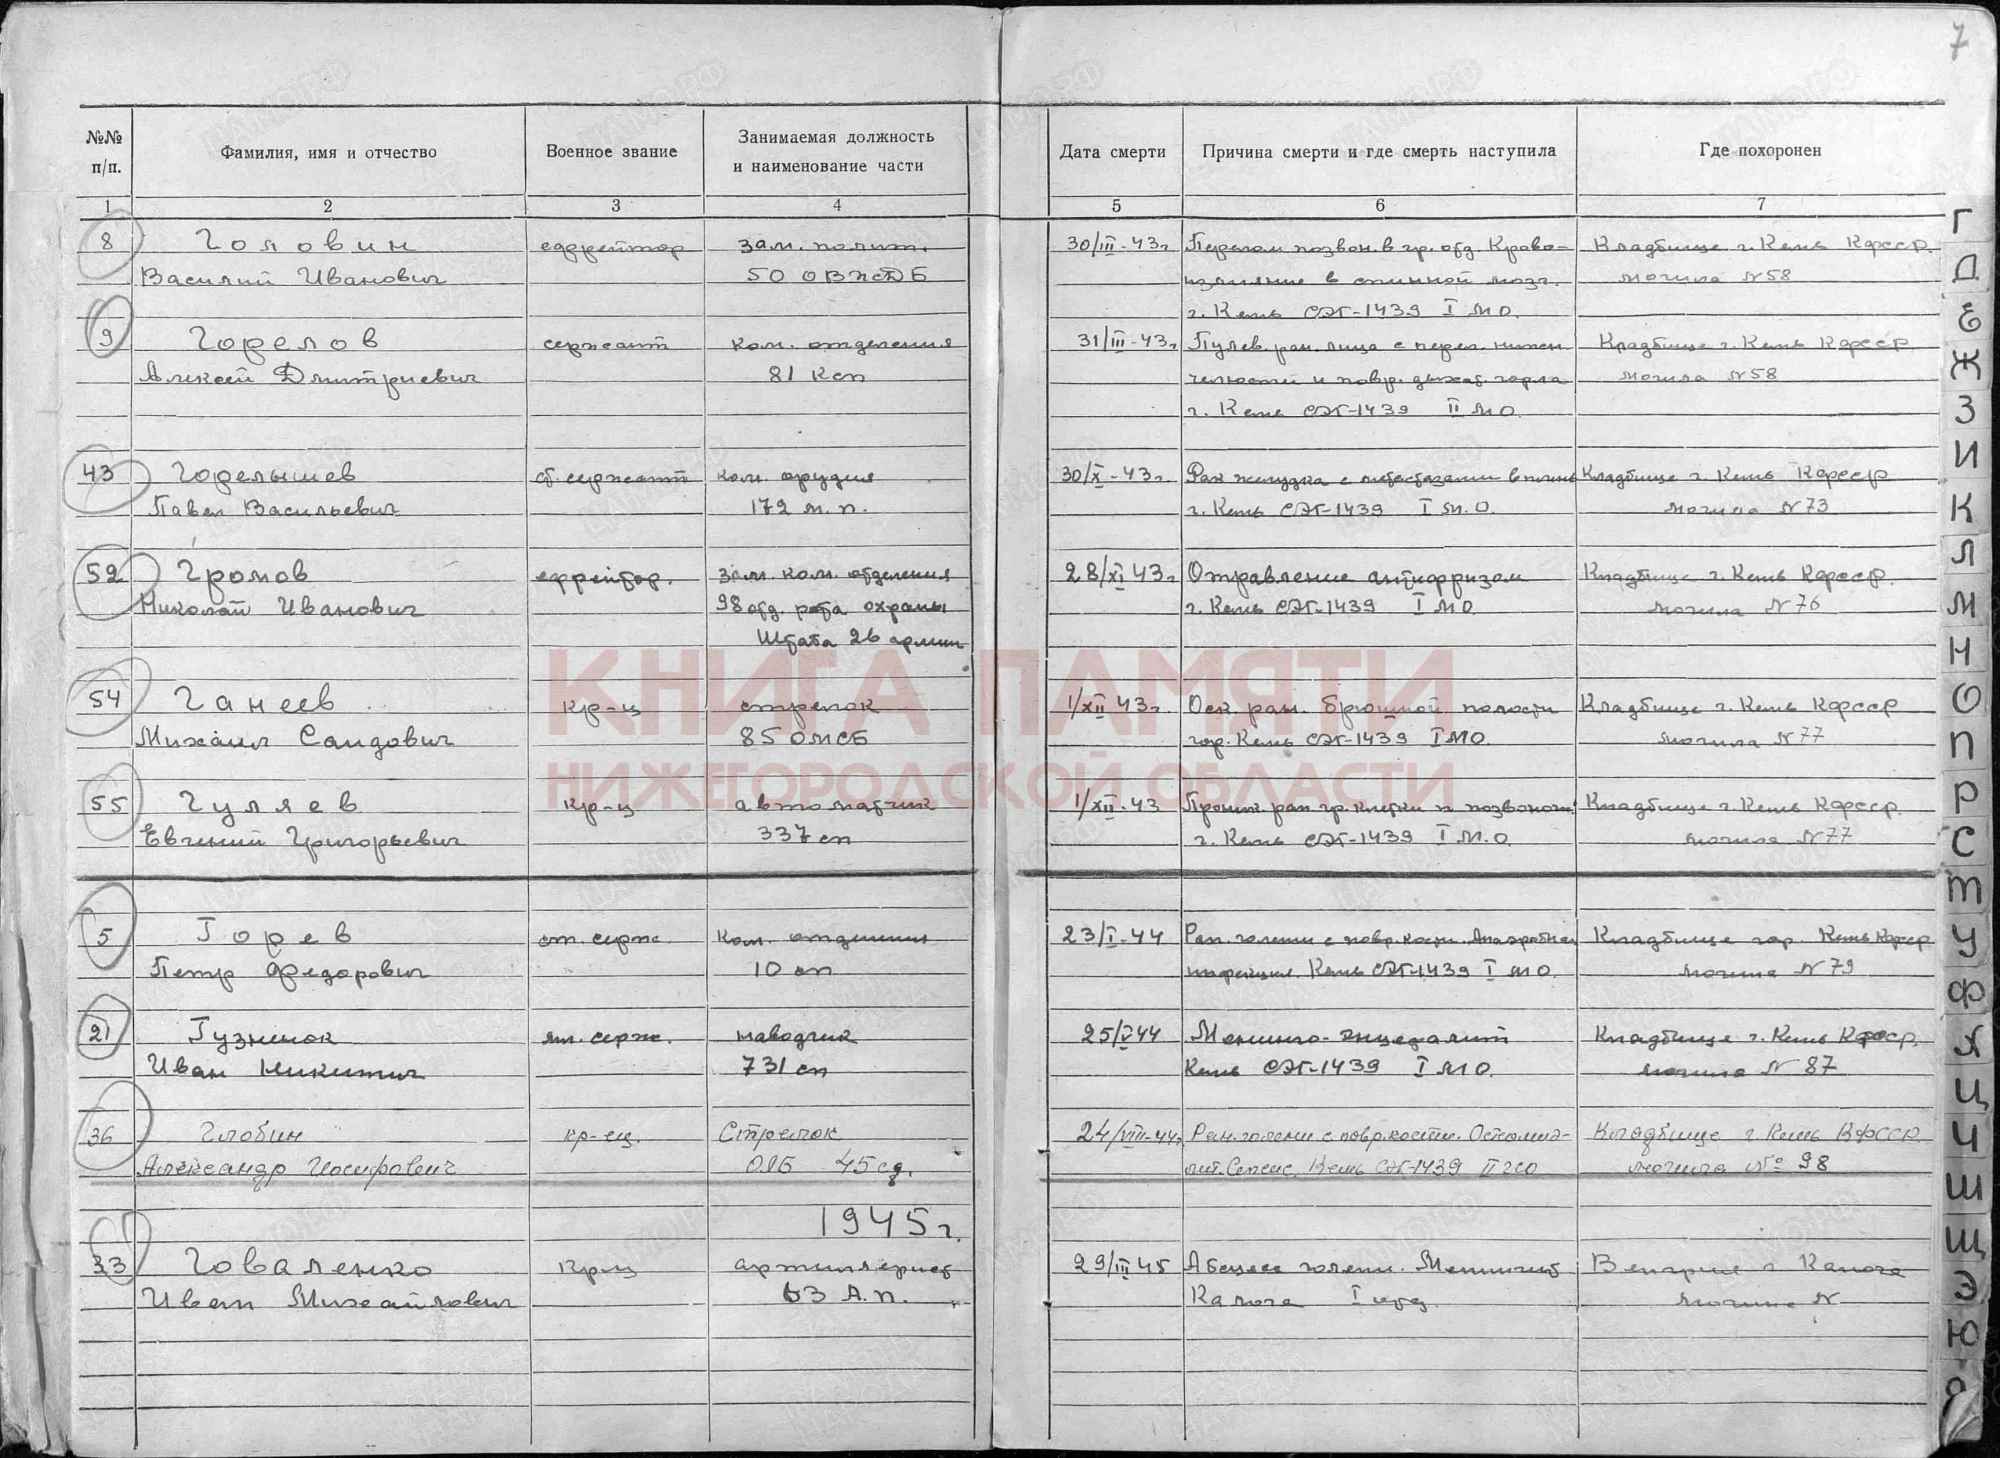 7
№№ п/п.
Фамилия, имя и отчество
Военное звание
Занимаемая должность и наименование части
Дата смерти
Причина смерти и где смерть наступила
Где похоронен
1 2 3 4 5 6 7
8 Головин ефрейтор зам. полит. 30/III-43г. Перелом позвон. в гр. отд. Крово- Кладбище г. Кемь КФССР.
Василий Иванович 50 ОВЖДБ излияние в спинной мозг. могила N 58
г. Кемь СЭГ-1439 I МО.
9 Горелов сержант ком. отделения 31/III-43г. Пулев. ран. лица с перел. нижн. Кладбище г. Кемь КФССР
Алексей Дмитриевич 81 ксп челюстей и повр. дыхат. горла могила N 58
г. Кемь СЭГ-1439 II МО.
43 Горелышев ст. сержант ком. орудия 30/X-43г. Рак желудка с метастазами в печень Кладбище г. Кемь КФССР
Павел Васильевич 172 м.п. г. Кемь СЭГ-1439 I М.О. могила N 73
52 Громов ефрейтор. зам. ком. отделения 28/XI 43г. Отравление антифризом Кладбище г. Кемь КФССР.
Николай Иванович 98 отд. рота охраны г. Кемь СЭГ-1439 I МО. могила N 76
Штаба 26 армии
54 Ганеев кр-ц стрелок 1/XII 43г. Оск. ран. брюшной полости Кладбище г. Кемь КФССР
Михаил Саидович 85 ОМСБ гор. Кемь СЭГ-1439 I МО. могила N 77
КНИГА ПАМЯТИ
НИЖЕГОРОДСКОЙ ОБЛАСТИ
55 Гуляев кр-ц автоматчик 1/XII-43 Проник. ран. гр. клетки и позвоноч. Кладбище г. Кемь КФССР.
Евгений Григорьевич 337 сп г. Кемь СЭГ-1439 I М.О. могила N 77
5 Горев ст. серж. ком. отделения 23/I-44 Ран. голени с повр. кости. Анаэробная Кладбище гор. Кемь КФССР
Петр Федорович 10 сп инфекция. Кемь СЭГ-1439 I МО. могила N 79
21 Гузненок мл. серж. наводчик 25/V 44 Менинго-энцефалит Кладбище г. Кемь КФССР.
Иван Никитич 731 сп Кемь СЭГ-1439 I МО. могила N 87
36 Глобин кр-ец. Стрелок 24/VIII-44г. Ран. голени с повр. кости. Остомиэ- Кладбище г. Кемь КФССР
Александр Иосифович ОЛБ 45 сд. лит. Сепсис. Кемь СЭГ-1439 II г со могила № 98
1945 г.
33 Говаленко Кр-ц артиллерист 29/III 45 Абсцесс голени. Менингит Венгрия г. Капоча
Иван Михайлович 63 А.П. Капоча I отд. могила N
Г
Д
Е
Ж
З
И
К
Л
М
Н
О
П
Р
С
Т
У
Ф
Х
Ц
Ч
Ш
Щ
Э
Ю
Я